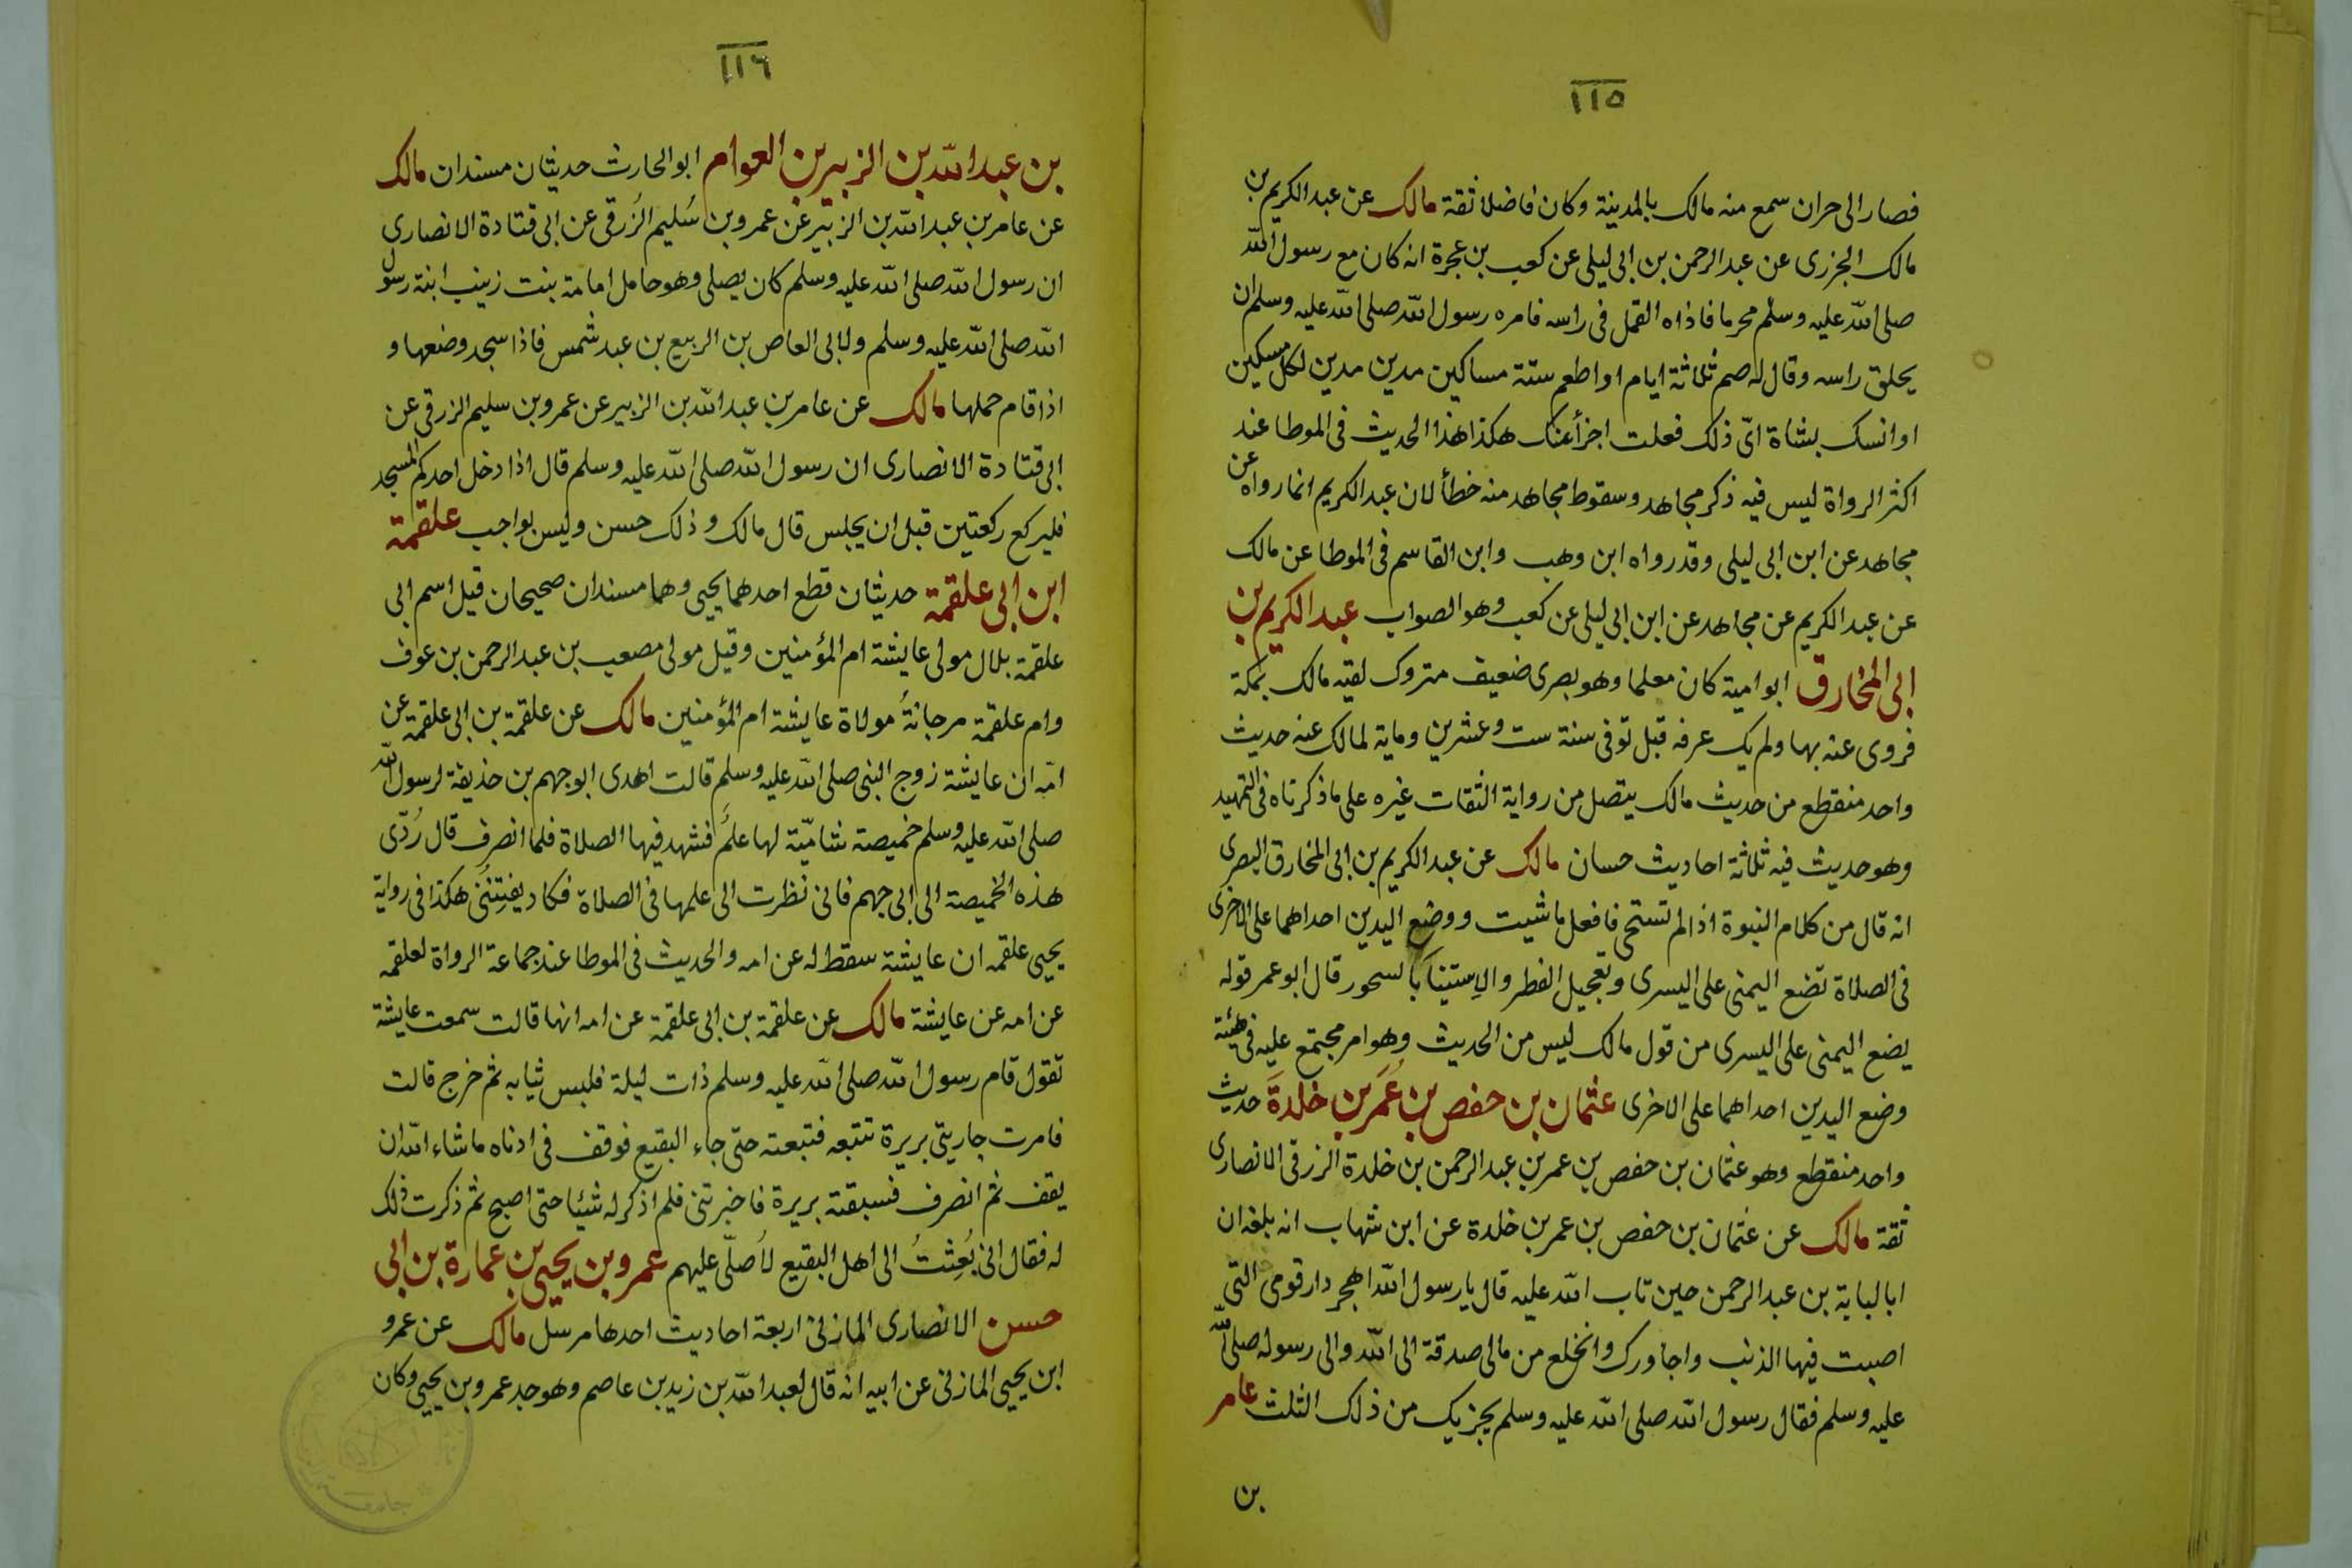 ١١٥
فصار الى حران سمع منه مالك بالمدينة وكان فاضلا ثقة مالك عن عبد الكريم بن
مالك الجزرى عن عبد الرحمن بن ابى ليلى عن كعب بن عجرة انه كان مع رسول الله
صلى الله عليه وسلم محرما فاذاه القمل فى راسه فامره رسول الله صلى الله عليه وسلم ان
يحلق راسه وقال له صم ثلاثة ايام او اطعم ستة مساكين مدين مدين لكل مسكين
او انسك بشاة اىّ ذلك فعلت اجزأ عنك هكذا هذا الحديث فى الموطا عند
اكثر الرواة ليس فيه ذكر مجاهد وسقوط مجاهد منه خطأ لان عبد الكريم انما رواه عن
مجاهد عن ابن ابى ليلى وقد رواه ابن وهب وابن القاسم فى الموطا عن مالك
عن عبد الكريم عن مجاهد عن ابن ابى ليلى عن كعب وهو الصواب عبد الكريم بن
ابى المخارق ابو امية كان معلما وهو بصرى ضعيف متروك لقيه مالك بمكة
فروى عنه بها ولم يك عرفه قبل توفى سنة ست وعشرين وماية لمالك عنه حديث
واحد منقطع من حديث مالك يتصل من رواية الثقات غيره على ما ذكرناه فى التمهيد
وهو حديث فيه ثلاثة احاديث حسان مالك عن عبد الكريم بن ابى المخارق البصرى
انه قال من كلام النبوة اذا لم تستحى فافعل ما شيت ووضع اليدين احداهما على الاخرى
فى الصلاة تضع اليمنى على اليسرى وتعجيل الفطر والاِستيناَ بالسحور قال ابو عمر قوله
يضع اليمنى على اليسرى من قول مالك ليس من الحديث وهو امر مجتمع عليه فى هيئة
وضع اليدين احداهما على الاخرى عثمان بن حفص بن عُمَر بن خلدةَ حديث
واحد منقطع وهو عثمان بن حفص بن عمر بن عبد الرحمن بن خلدة الزرقى الانصارى
ثقة مالك عن عثمان بن حفص بن عمر بن خلدة عن ابن شهاب انه بلغه ان
ابا لباية بن عبد الرحمن حين تاب الله عليه قال يا رسول الله اهجر دار قومى التى
اصبت فيها الذنب واجاورك وانخلع من مالى صدقة الى الله والى رسوله صلى الله
عليه وسلم فقال رسول الله صلى الله عليه وسلم يجزيك من ذلك الثلث عامر
بن
١١٦
بن عبد الله بن الزبير بن العوام ابو الحارث حديثان مسندان مالك
عن عامر بن عبد الله بن الزبير عن عمرو بن سُليم الزُرقى عن ابى قتادة الانصارى
ان رسول الله صلى الله عليه وسلم كان يصلى وهو حامل امامة بنت زينب ابنة رسول
الله صلى الله عليه وسلم ولابى العاص بن الربيع بن عبد شمس فاذا سجد وضعها و
اذا قام حملها مالك عن عامر بن عبد الله بن الزبير عن عمرو بن سليم الزرقى عن
ابى قتادة الانصارى ان رسول الله صلى الله عليه وسلم قال اذا دخل احدكم المسجد
فليركع ركعتين قبل ان يجلس قال مالك وذلك حسن وليس بواجب علقمة
ابن ابى علقمة حديثان قطع احدهما يحيى وهما مسندان صحيحان قيل اسم ابى
علقمة بلال مولى عايشة ام المؤمنين وقيل مولى مصعب بن عبد الرحمن بن عوف
وام علقمة مرجانةُ مولاة عايشة ام المؤمنين مالك عن علقمة بن ابى علقمة عن
امّه ان عايشة زوج النبى صلى الله عليه وسلم قالت اهدى ابو جهم بن حذيفة لرسول الله
صلى الله عليه وسلم خميصة شاميّة لها علمٌ فشهد فيها الصلاة فلما انصرف قال رُدّى
هذه الخميصة الى ابى جهم فانى نظرت الى علمها فى الصلاة فكاد يفتِنُنى هكذا فى رواية
يحيى علقمه ان عايشة سقط له عن امه والحديث فى الموطا عند جماعة الرواة لعلقمه
عن امه عن عايشة مالك عن علقمة بن ابى علقمة عن امه انها قالت سمعت عايشة
تقول قام رسول الله صلى الله عليه وسلم ذات ليلة فلبس ثيابه ثم خرج قالت
فامرت جاريتى بريرة تتبعه فتبعته حتى جاء البقيع فوقف فى ادناه ما شاء الله ان
يقف ثم انصرف فسبقته بريرة فاخبرتنى فلم اذكر له شيئا حتى اصبح ثم ذكرت ذلك
له فقال انى بُعِثتُ الى اهل البقيع لاُصلّى عليهم عمرو بن يحيى بن عمارة بن ابى
حسن الانصارى المازنى اربعة احاديث احدها مرسل مالك عن عمرو
ابن يحيى المازنى عن ابيه انه قال لعبد الله بن زيد بن عاصم وهو جد عمرو بن يحيى وكان
جامعة